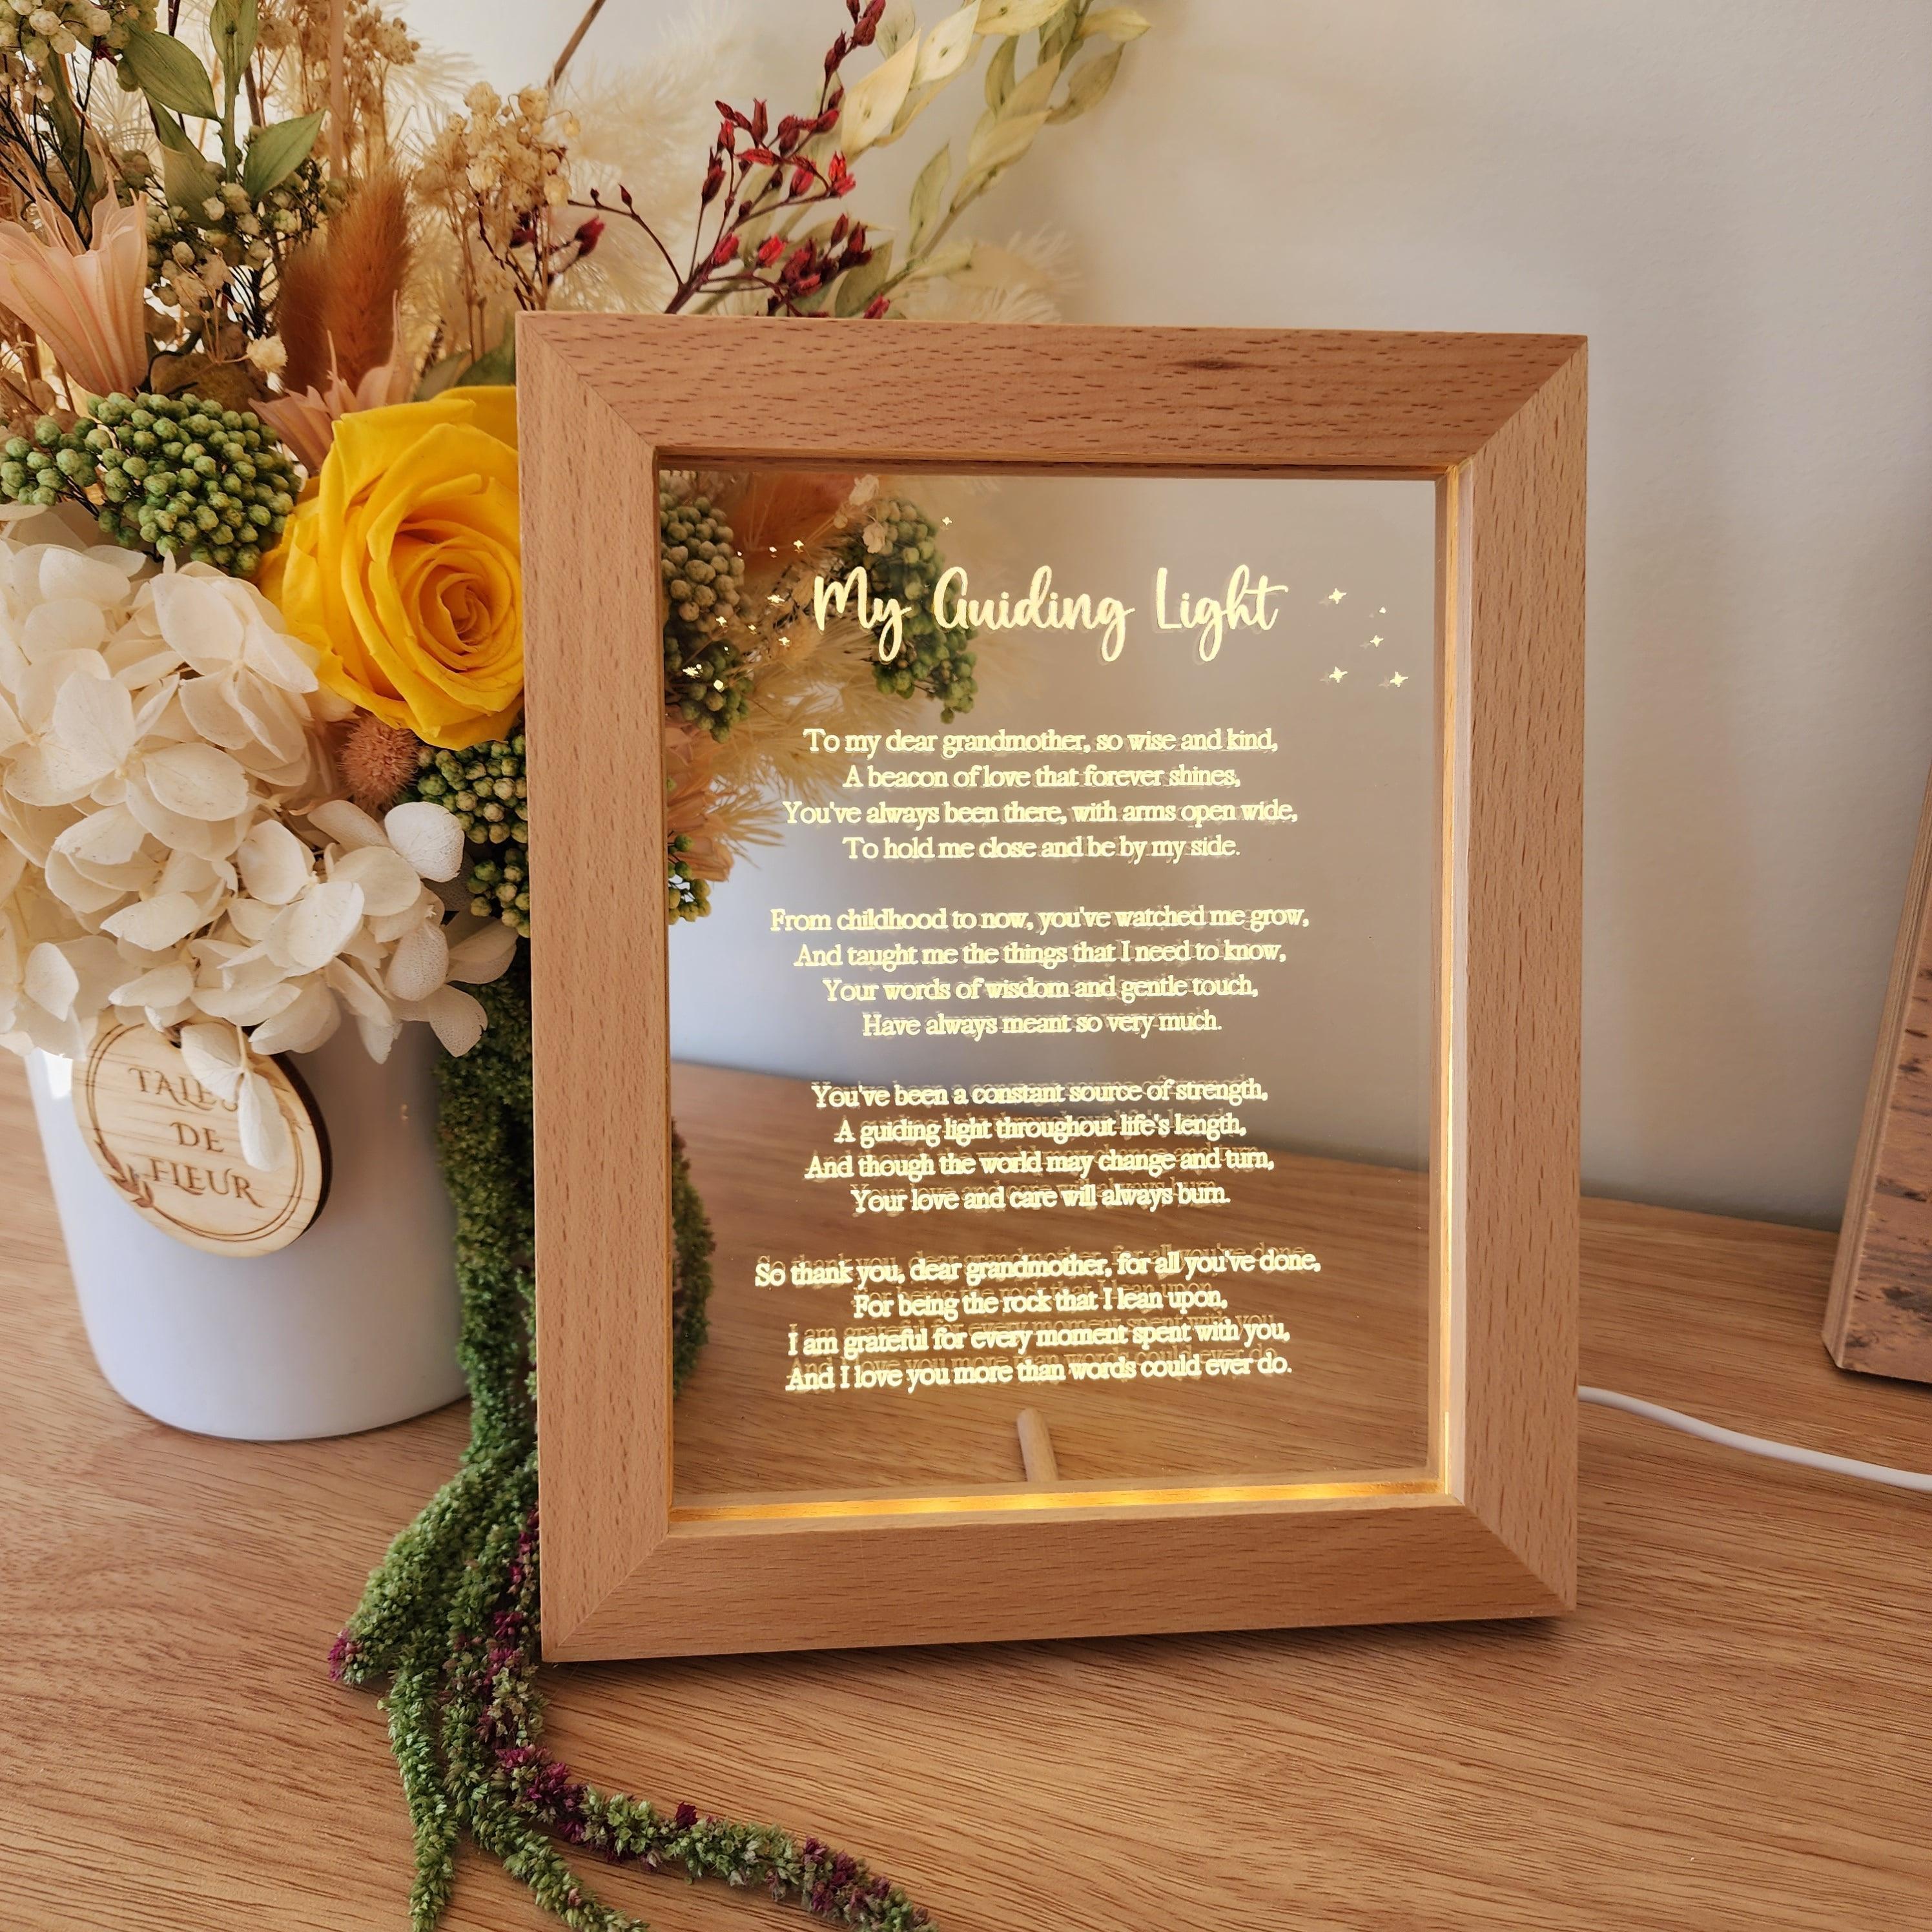 My Guiding Light
To my dear grandmother, so wise and kind,
A beacon of love that forever shines,
You've always been there, with arms open wide,
To hold me close and be by my side.
From childhood to now, you've watched me grow,
And taught me the things that I need to know,
Your words of wisdom and gentle touch,
Have always meant so very much.
You've been a constant source of strength,
A guiding light throughout life's length,
And though the world may change and turn,
Your love and care will always burn.
So thank you, dear grandmother, for all you've done,
For being the rock that I lean upon,
I am grateful for every moment spent with you,
And I love you more than words could ever do.
TALES
DE
FLEUR